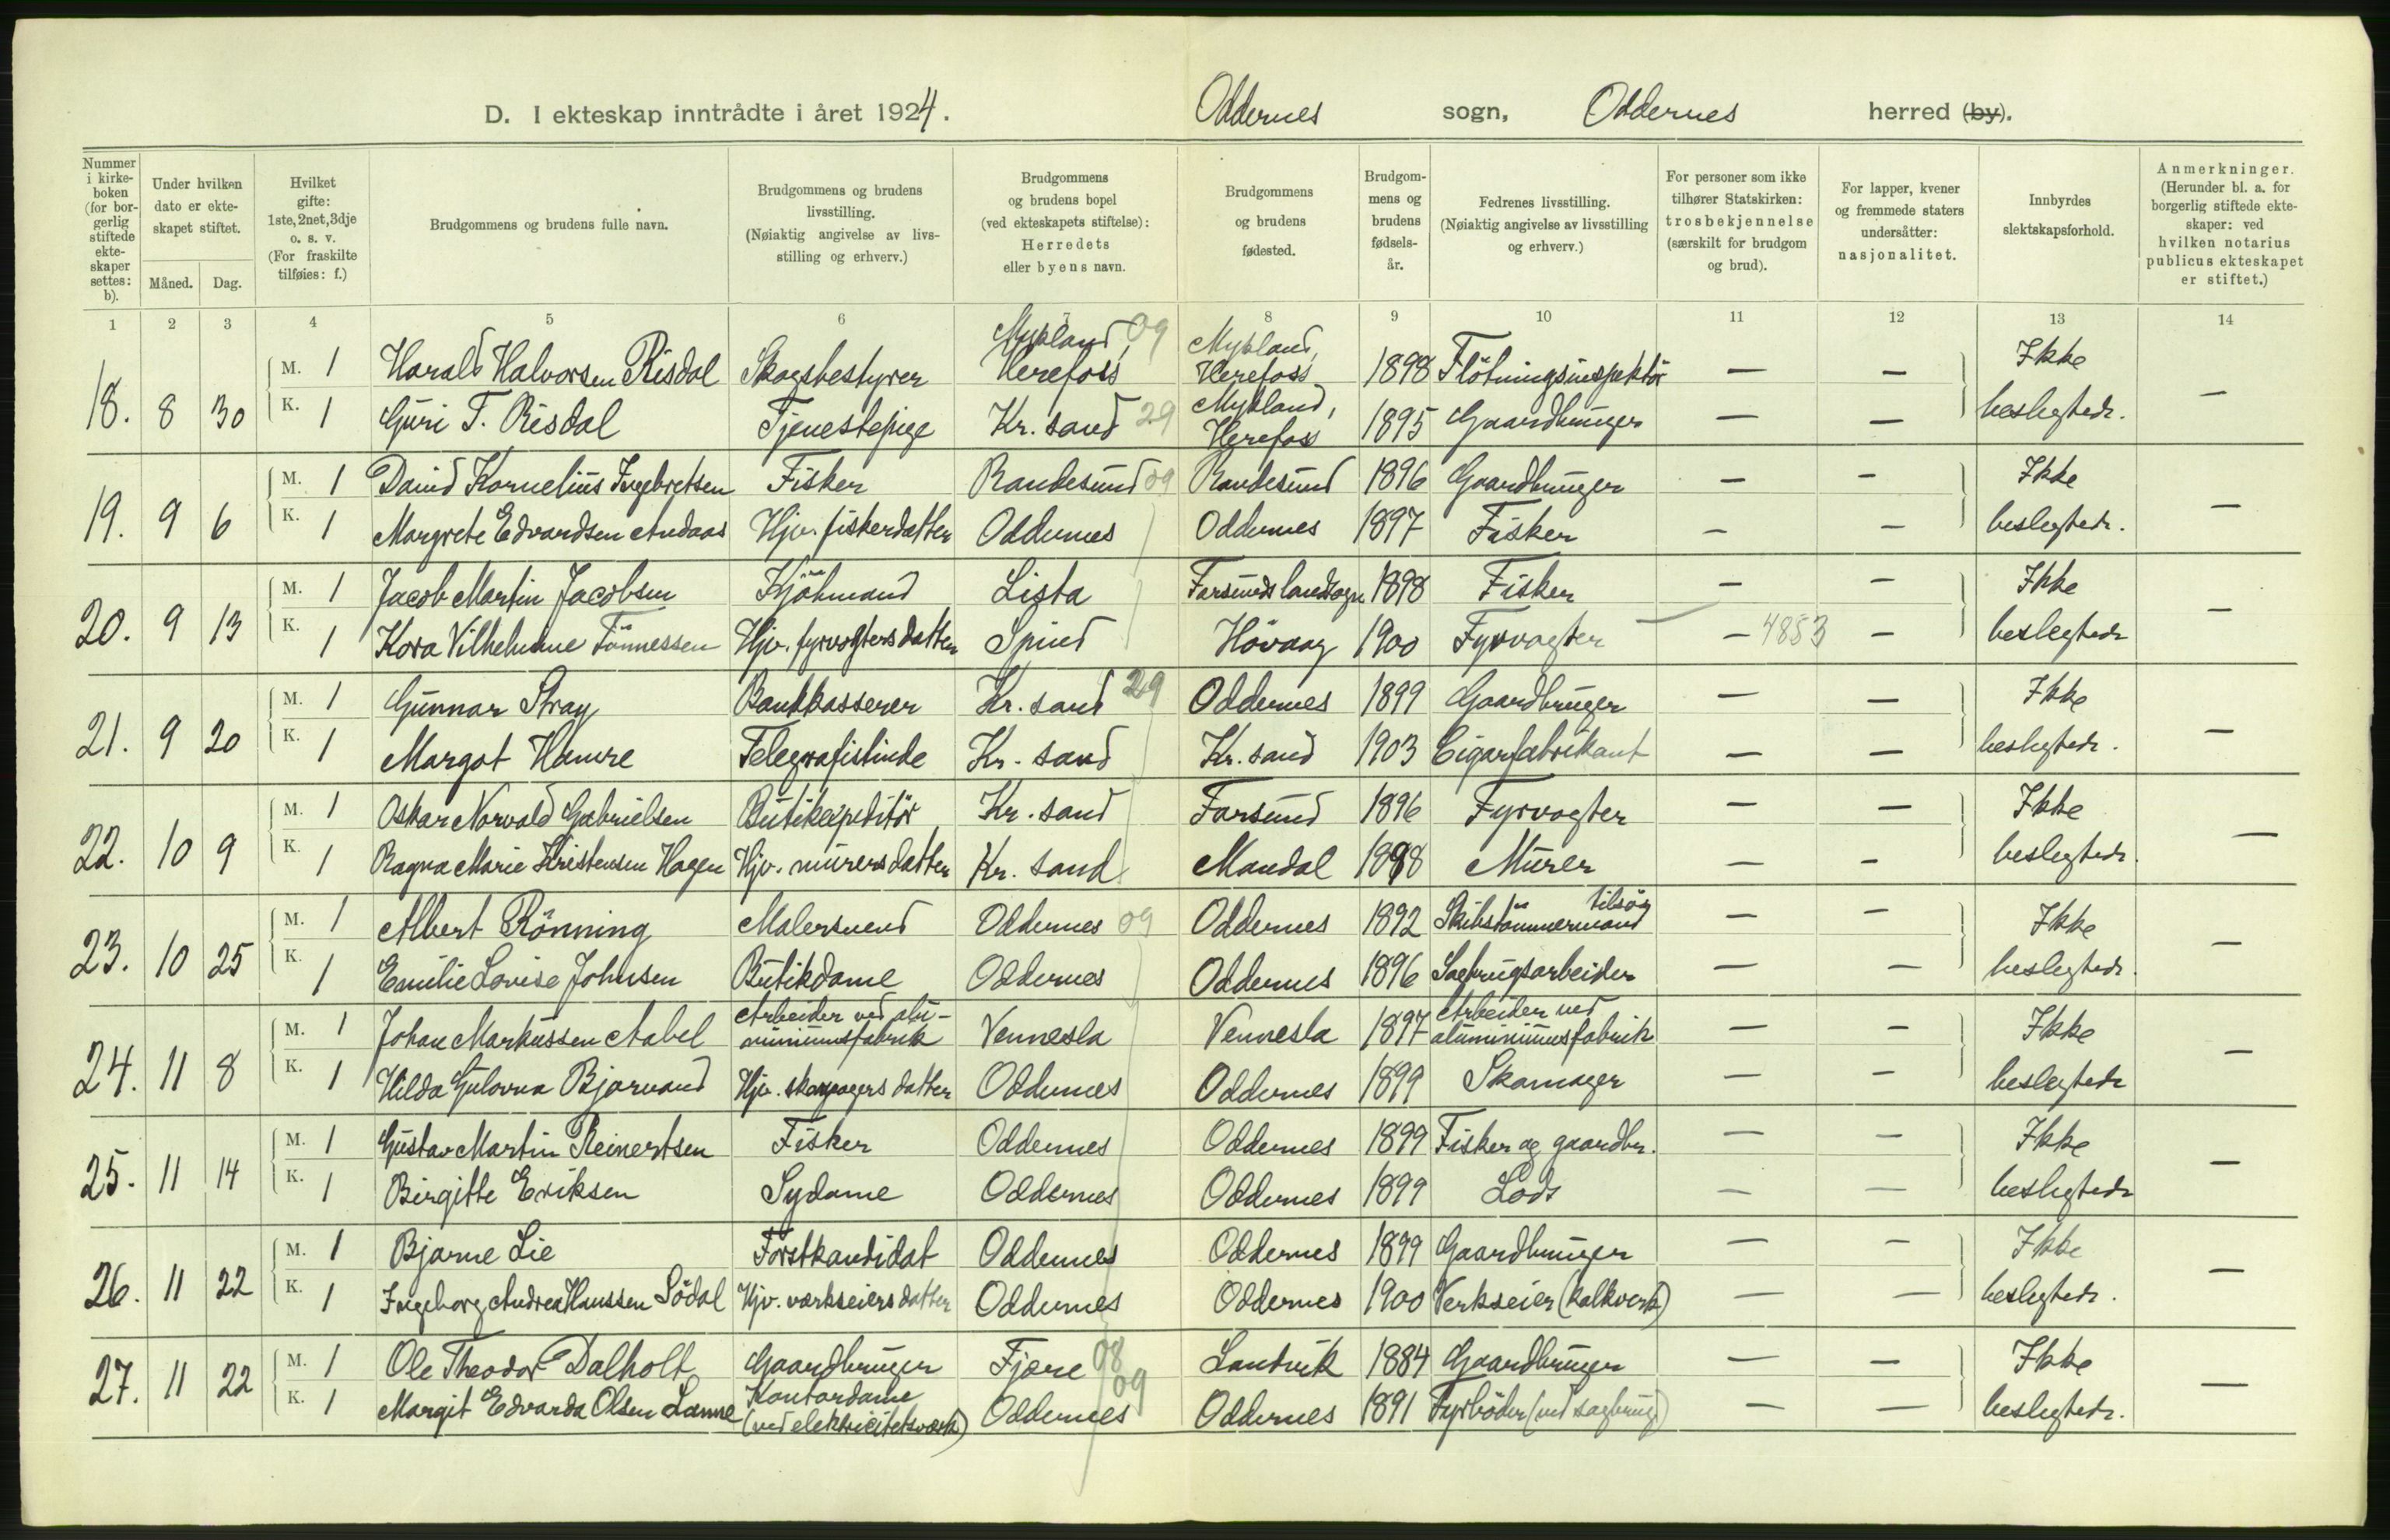 D. I ekteskap inntrådte i året 1924. Oddernes sogn, Oddernes herred (by).
Nummer i kirkeboken (for borgerlig stiftede ekteskaper settes: b).
Under hvilken dato er ekteskapet stiftet.
Måned. Dag.
Hvilket gifte: 1ste, 2net, 3dje o. s. v. (For fraskilte tilføies: f.)
Brudgommens og brudens fulle navn.
Brudgommens og brudens livsstilling. (Nøiaktig angivelse av livsstilling og erhverv.)
Brudgommens og brudens bopel (ved ekteskapets stiftelse): Herredets eller byens navn.
Brudgommens og brudens fødested.
Brudgommens og brudens fødselsår.
Fedrenes livsstilling. (Nøiaktig angivelse av livsstilling og erhverv.)
For personer som ikke tilhører Statskirken: trosbekjennelse (særskilt for brudgom og brud).
For lapper, kvener og fremmede staters undersåtter: nasjonalitet.
Innbyrdes slektskapsforhold.
Anmerkninger. (Herunder bl. a. for borgerlig stiftede ekteskaper: ved hvilken notarius publicus ekteskapet er stiftet.)
1 2 3 4 5 6 7 8 9 10 11 12 13 14
18. 8 30 M. 1 Harald Halvorsen Risdal Skogsbestyrer Mykland, Herefoss 09 Mykland, Herefoss 1898 Flötningsinspektör — — Ikke
K. 1 Guri T. Risdal Tjenestepige Kr. sand 29 Mykland, Herefoss 1895 Gaardbruger — — beslegtede. —
19. 9 6 M. 1 David Kornelius Ingebretsen Fisker Randesund 09 Randesund 1896 Gaardbruger — — Ikke
K. 1 Margrete Edvardsen Andaas Hjv. fiskerdatter Oddernes Oddernes 1897 Fisker — — beslegtede. —
20. 9 13 M. 1 Jacob Martin Jacobsen Kjöbmand Lista Farsunds landsogn 1898 Fisker — — Ikke
K. 1 Kora Vilhelmine Tönnessen Hjv. fyrvogters datter Spind Hövaag 1900 Fyrvogter — 4853 — beslegtede —
21. 9 20 M. 1 Gunnar Stray Bankkasserer Kr. sand 29 Oddernes 1899 Gaardbruger — — Ikke
K. 1 Margot Hamre Telegrafistinde Kr. sand Kr. sand 1903 Cigarfabrikant — — beslegtede. —
22. 10 9 M. 1 Oskar Norvald Gabrielsen Butikexpeditör Kr. sand Farsund 1896 Fyrvogter — — Ikke
K. 1 Ragna Marie Kristensen Hagen Hjv. murers datter Kr. sand Mandal 1898 Murer — — beslegtede. —
23. 10 25 M. 1 Albert Rönning Malersvend Oddernes 09 Oddernes 1892 Skibstömmermand tilsös — — Ikke
K. 1 Emilie Lovise Johnsen Butikdame Oddernes Oddernes 1896 Sagbrugsarbeider — — beslegtede. —
24. 11 8 M. 1 Johan Markussen Aabel Arbeider ved aluminiumsfabrik Vennesla Vennesla 1897 Arbeider ved aluminiumsfabrik — — Ikke
K. 1 Hilda Gulovna Bjorvand Hjv. skomagers datter Oddernes Oddernes 1899 Skomager — — beslegtede —
25. 11 14 M. 1 Gustav Martin Reinertsen Fisker Oddernes Oddernes 1899 Fisker og gaardbr. — — Ikke
K. 1 Birgitte Eriksen Sydame Oddernes Oddernes 1899 Lods — — beslegtede —
26. 11 22 M. 1 Bjarne Lie Forstkandidat Oddernes Oddernes 1899 Gaardbruger — — Ikke
K. 1 Ingeborg Andrea Hanssen Södal Hjv. værkseiers datter Oddernes Oddernes 1900 Verkseier (kalkverk) — — beslegtede. —
27. 11 22 M. 1 Ole Theodor Dalholt Gaardbruger Fjære 08 Landvik 1884 Gaardbruger — — Ikke
K. 1 Margit Edvarda Olsen Lanne Kontordame (ved elektricitetsværk) Oddernes 09 Oddernes 1891 Fyrböder (ved sagbrug) — — beslegtede. —